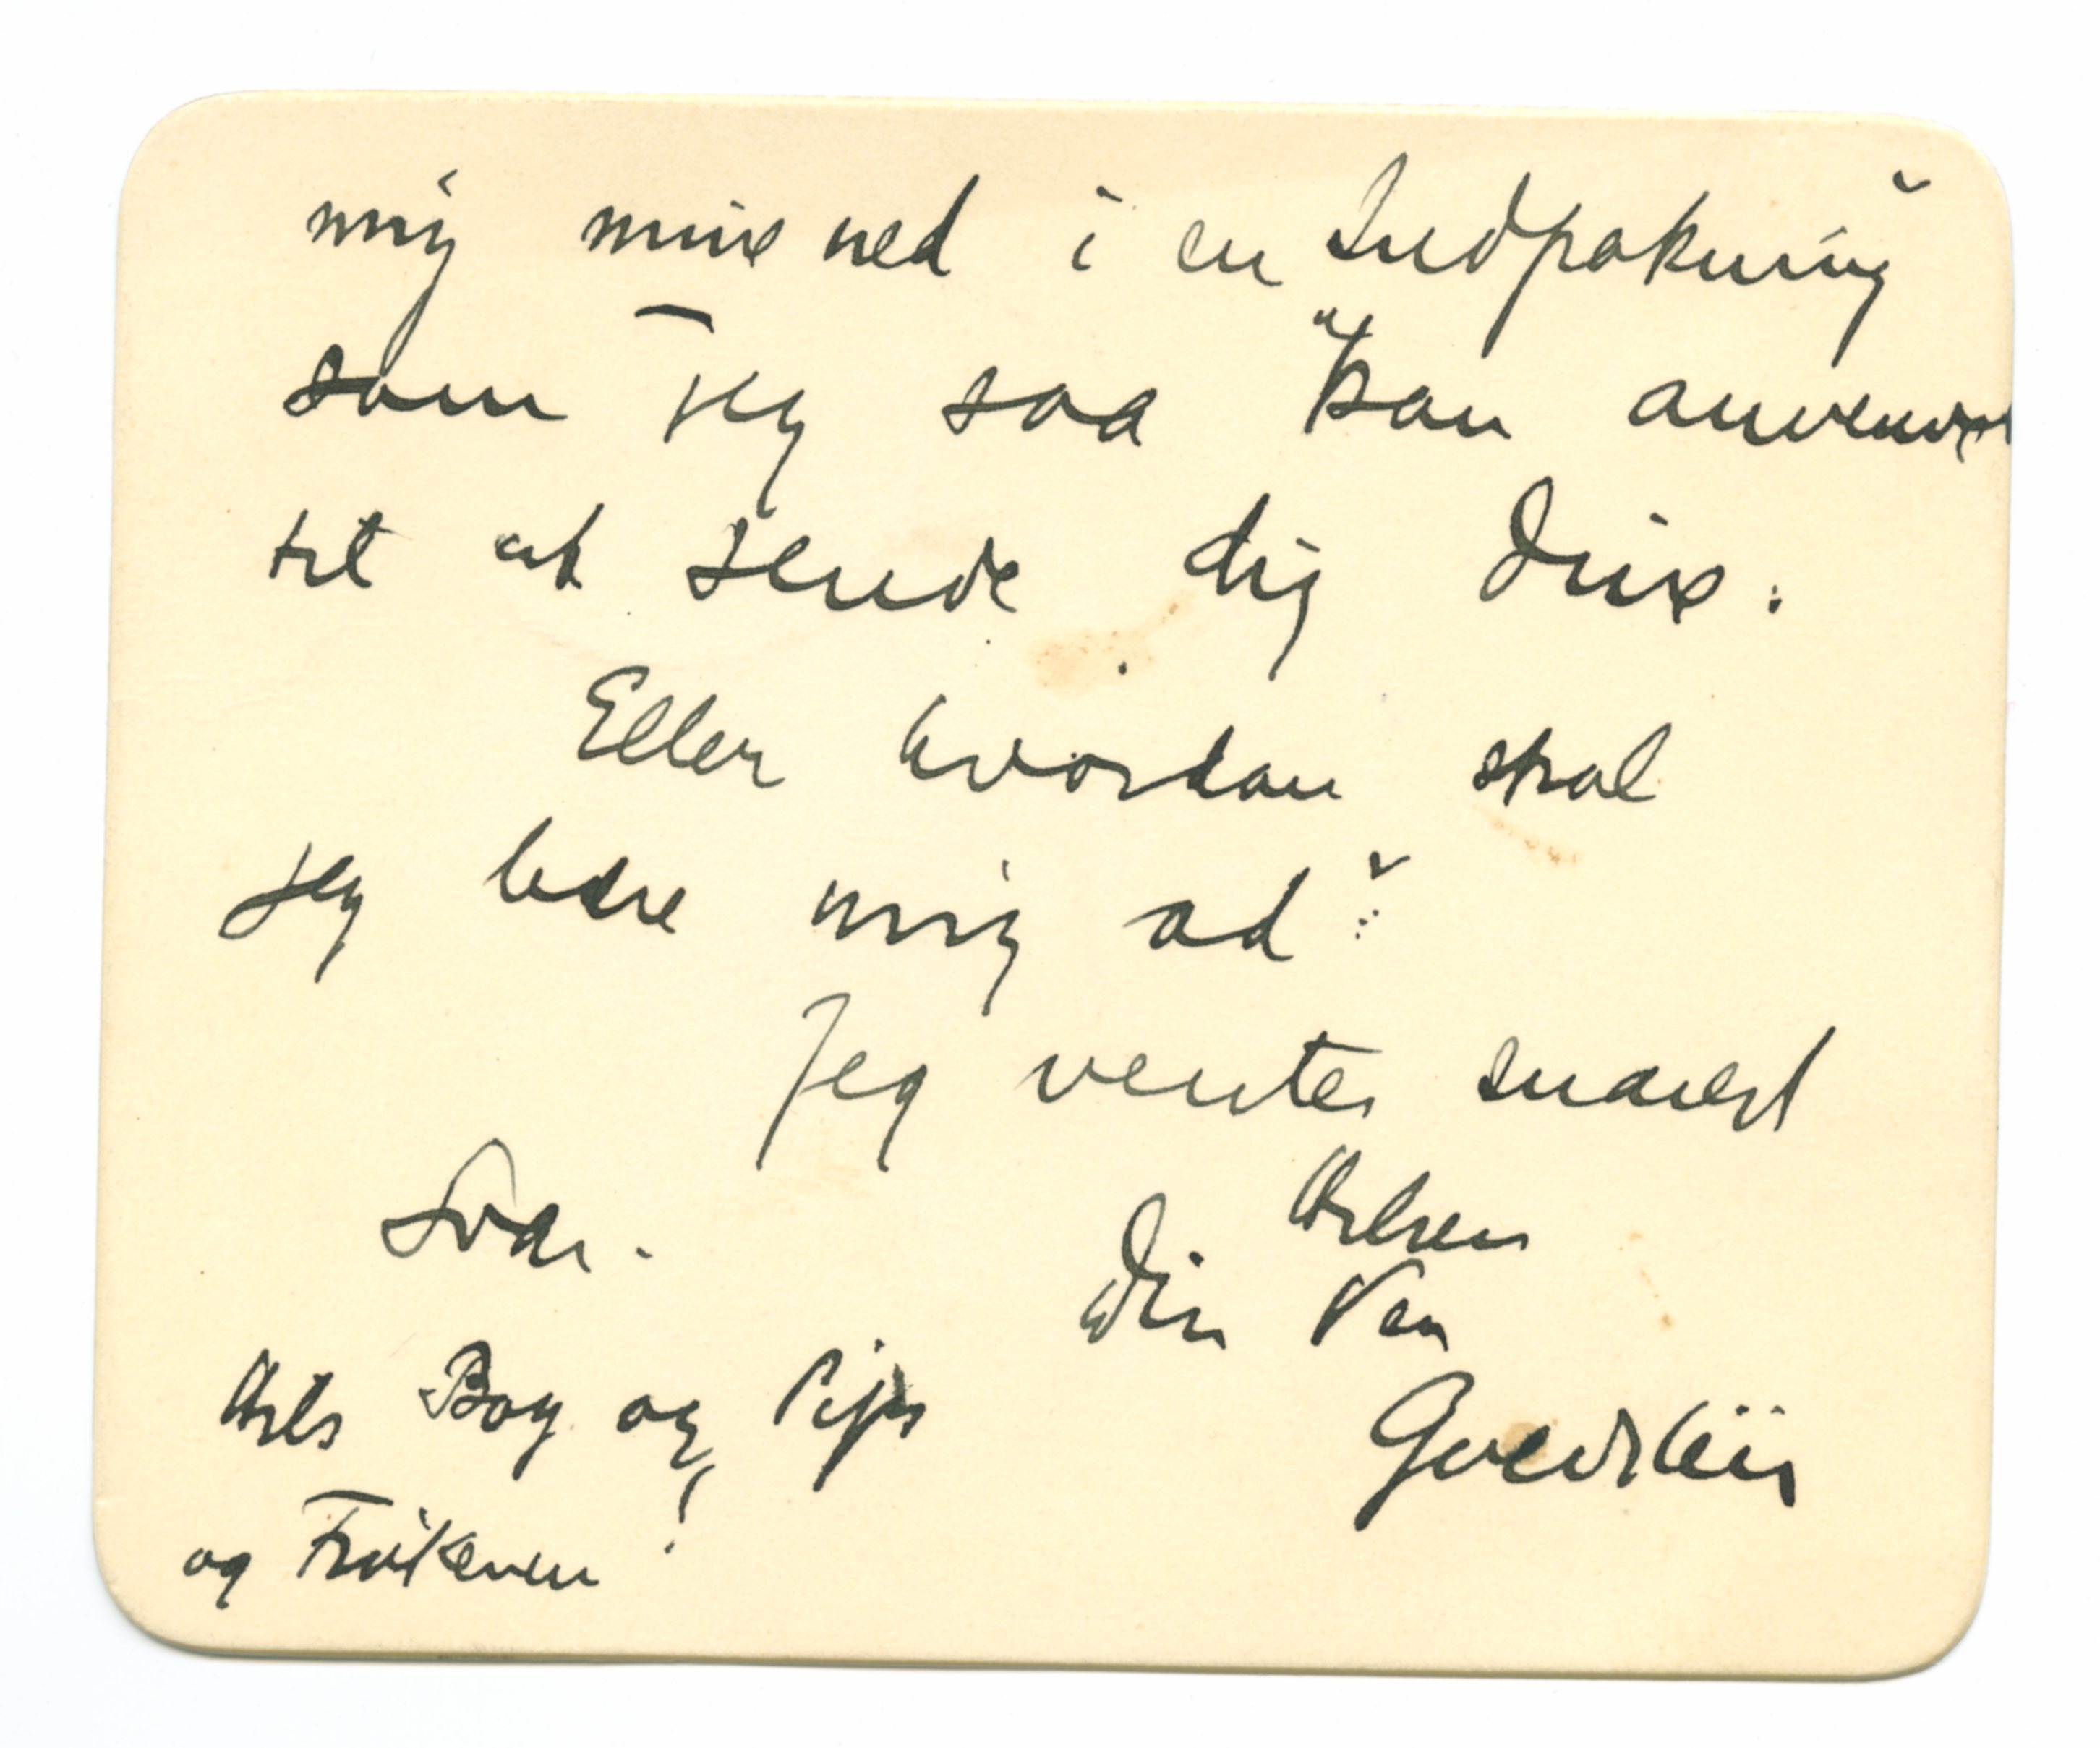 mig mine ned i en Indpakning
som jeg saa kan anvende
til at sende dig dine.
Eller hvordan skal
jeg bære mig ad?
Jeg venter snarest
Svar.
Hilsen
Din Ven
Hils Bog og
og Frøkenen!